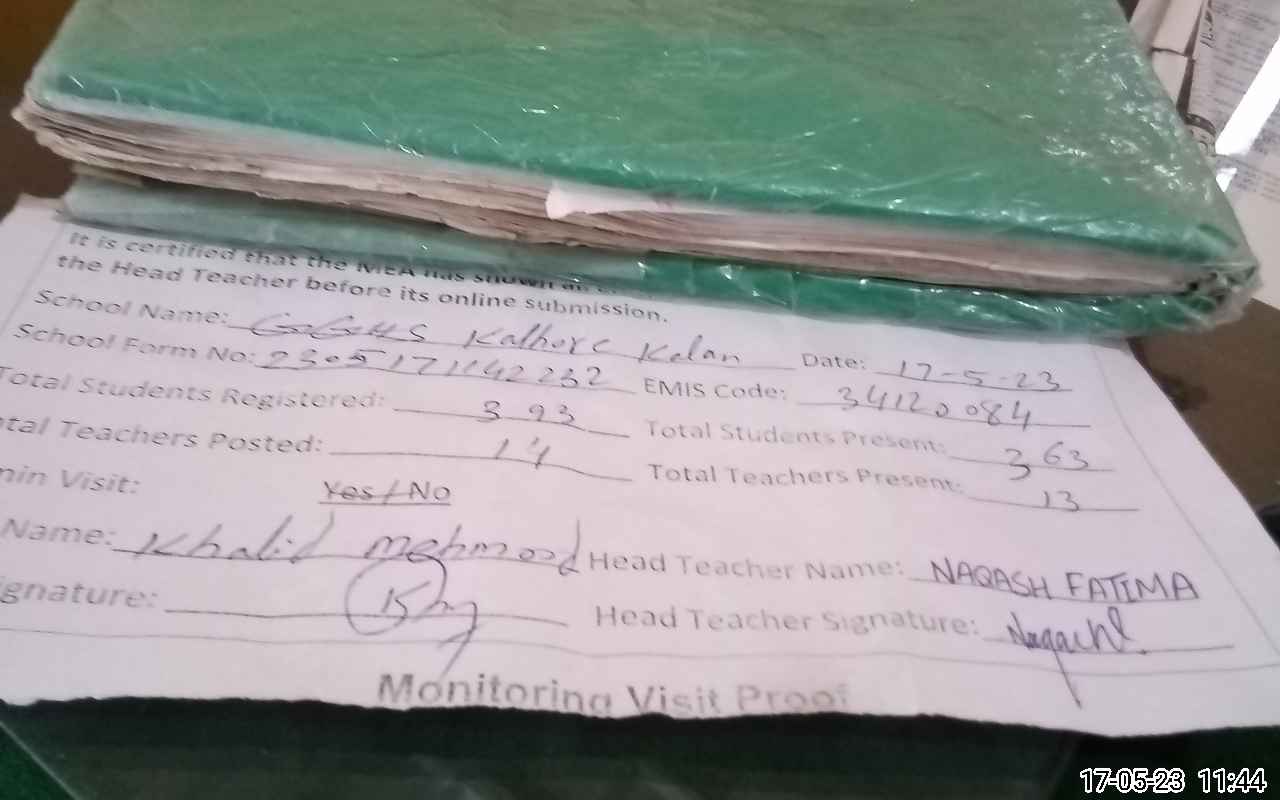 It is certified that the MEA has shown an
the Head Teacher before its online submission.
School Name: GGHS Kalhore Kalan Date: 17-5-23
School Form No: 2305171142232 EMIS Code: 34120084
Total Students Registered: 393 Total Students Present: 363
tal Teachers Posted: 14 Total Teachers Present: 13
min Visit: Yes / No
Name: Khalid mehmood Head Teacher Name: NAQASH FATIMA
ignature: Head Teacher Signature:
Monitoring Visit Proof
17-05-23 11:44